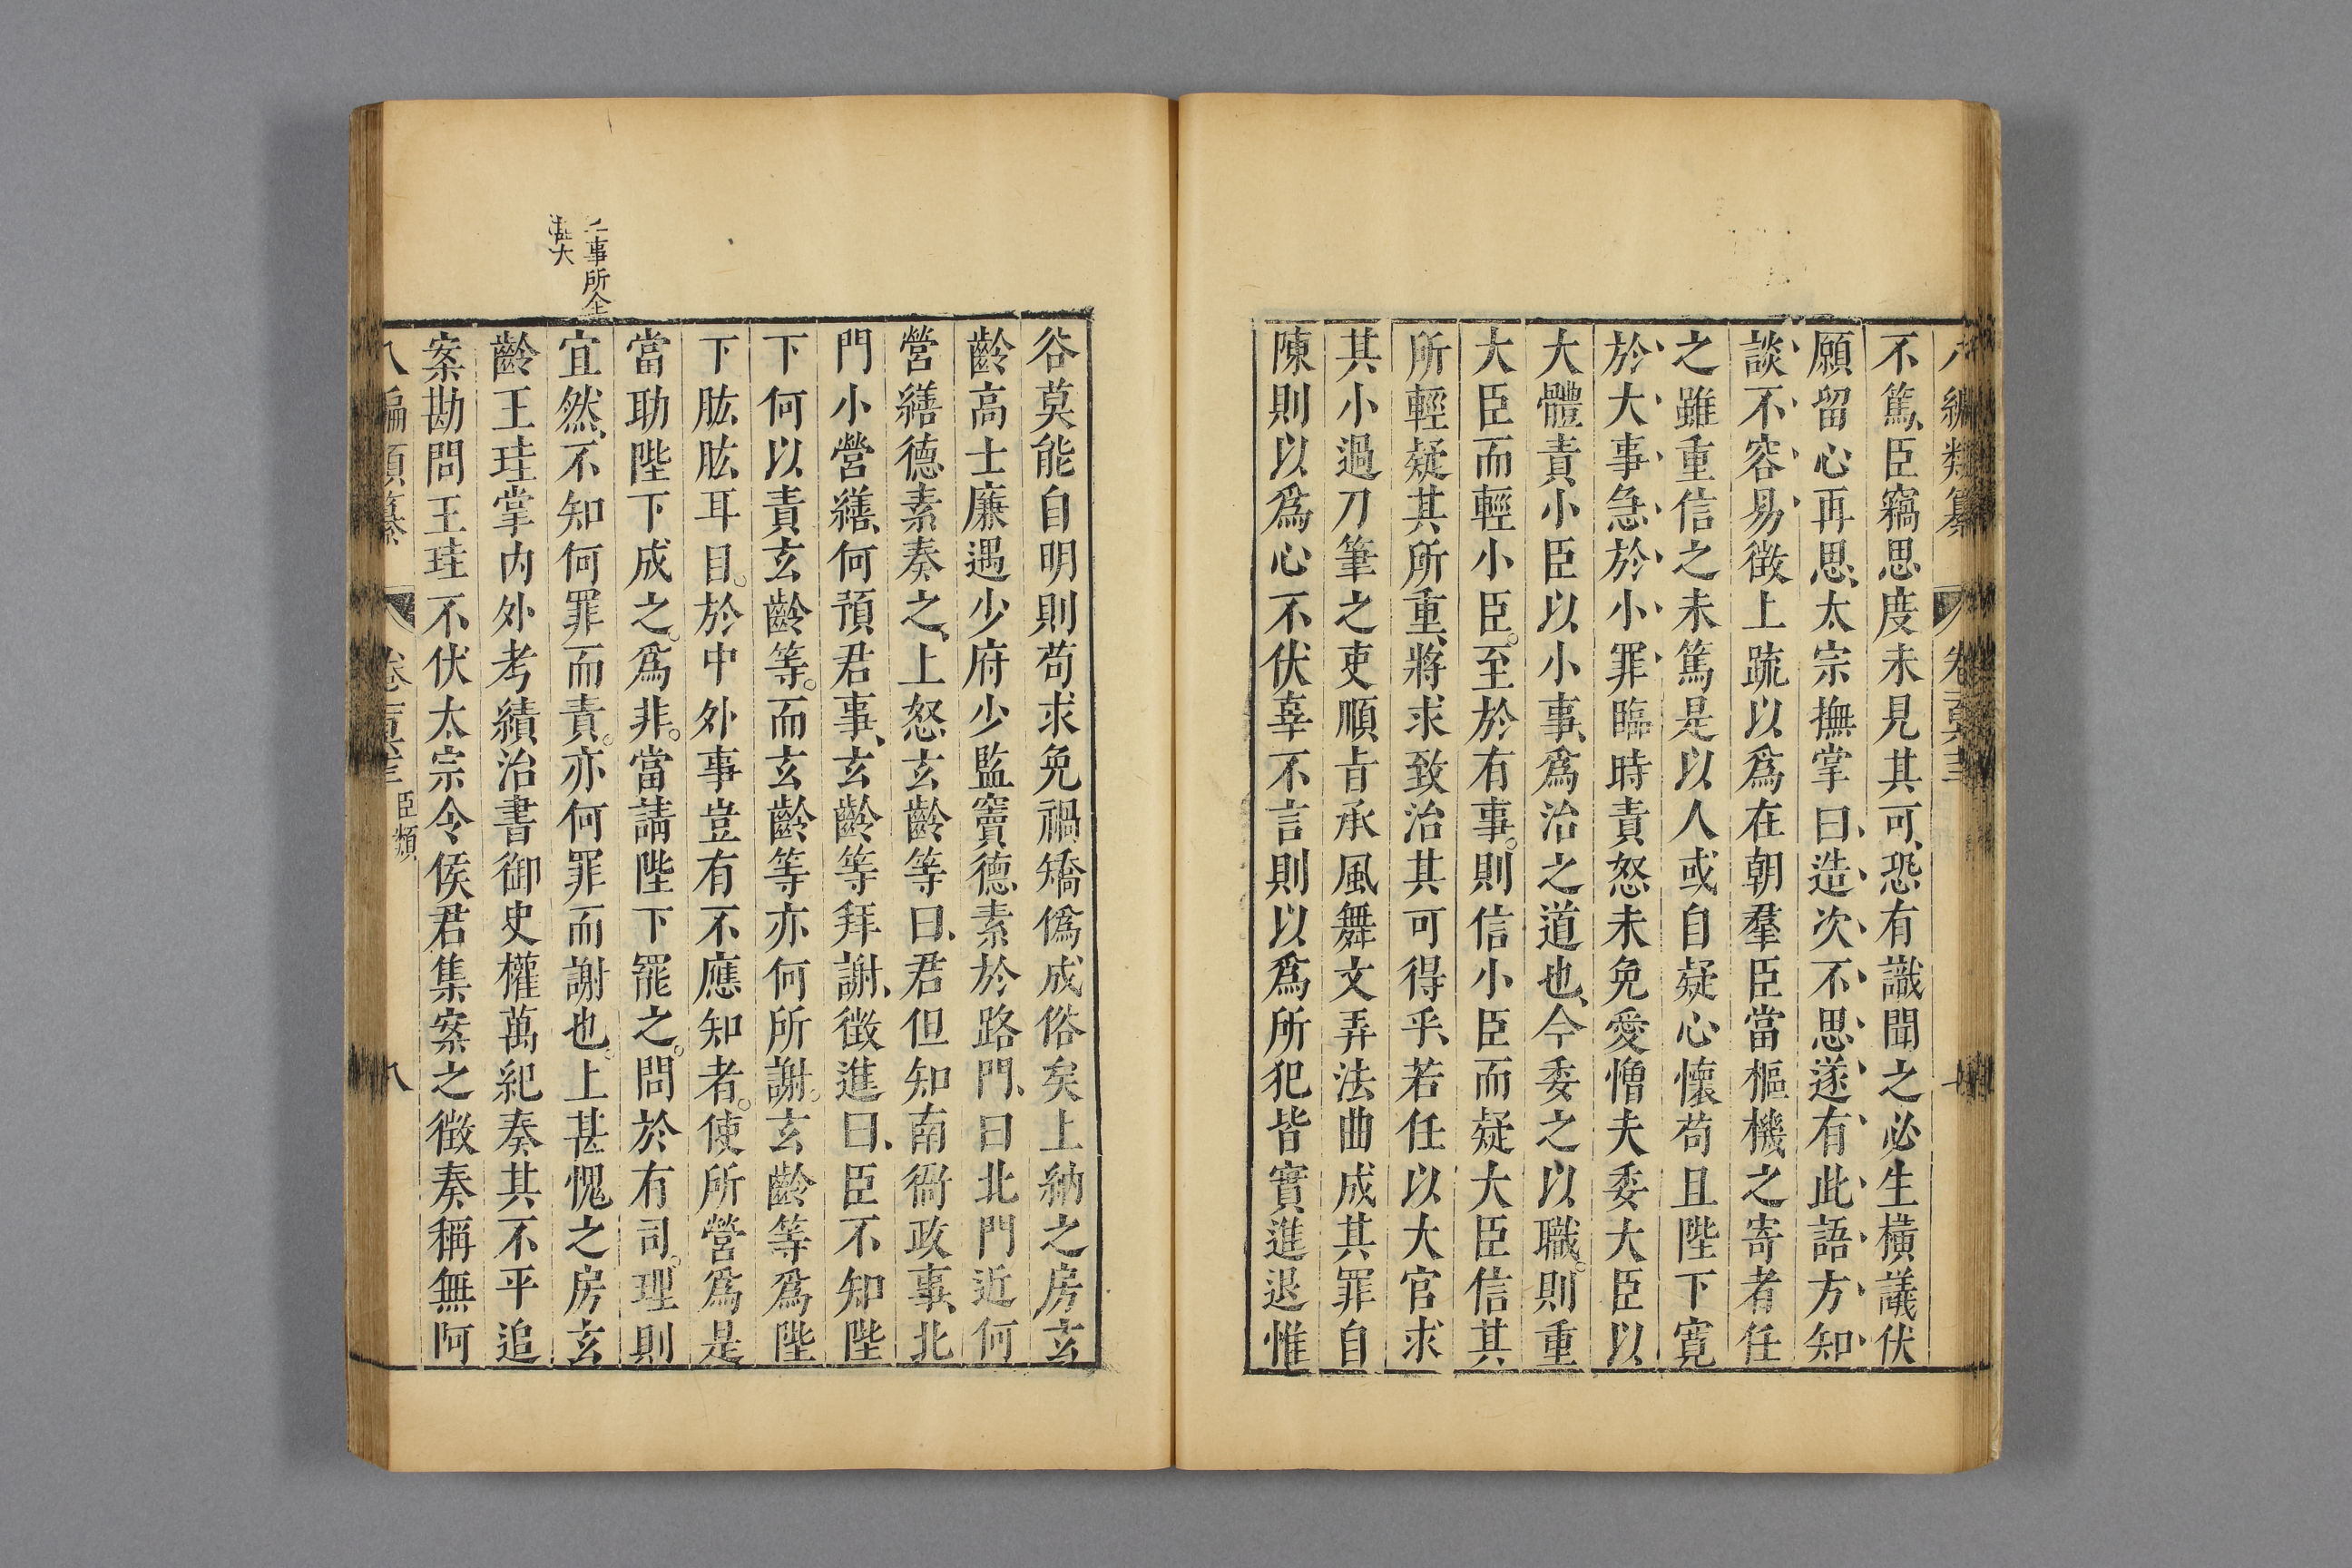 不篤臣竊思度未見其可恐有識聞之必生橫議伏
願留心再思太宗撫掌曰造次不思遂有此語方知
談不容易徵上疏以爲在朝羣臣當樞機之寄者任
之雖重信之未篤是以人或自疑心懷苟且陛下寬
於大事急於小罪臨時責怒未免愛憎夫委大臣以
大體責小臣以小事爲治之道也今委之以職則重
大臣而輕小臣至於有事則信小臣而疑大臣信其
所輕疑其所重將求致治其可得乎若任以大官求
其小過刀筆之吏順旨承風舞文弄法曲成其罪自
陳則以爲心不伏辜不言則以爲所犯皆實進退惟
谷莫能自明則苟求免禍矯僞成俗矣上納之房玄
齡高士廉遇少府少監竇德素於路門曰北門近何
營繕德素奏之上怒玄齡等曰君但知南衙政事北
門小營繕何預君事玄齡等拜謝徵進曰臣不知陛
下何以責玄齡等而玄齡等亦何所謝玄齡等爲陛
下肱股耳目於中外事豈有不應知者使所營爲是
當助陛下成之爲非當請陛下罷之問於有司理則
事所全
大
宜然不知何罪而責亦何罪而謝也上甚愧之房玄
齡王珪掌内外考績治書御史權萬紀奏其不平追
案勘問王珪不伏太宗令侯君集案之徵奏稱無阿
臣類
八